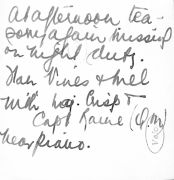 At afternoon tea -
some again missing
on night duty.
Han Vines & Mel
with Maj. Crisp &
Capt Raine (Q.M)
near piano.